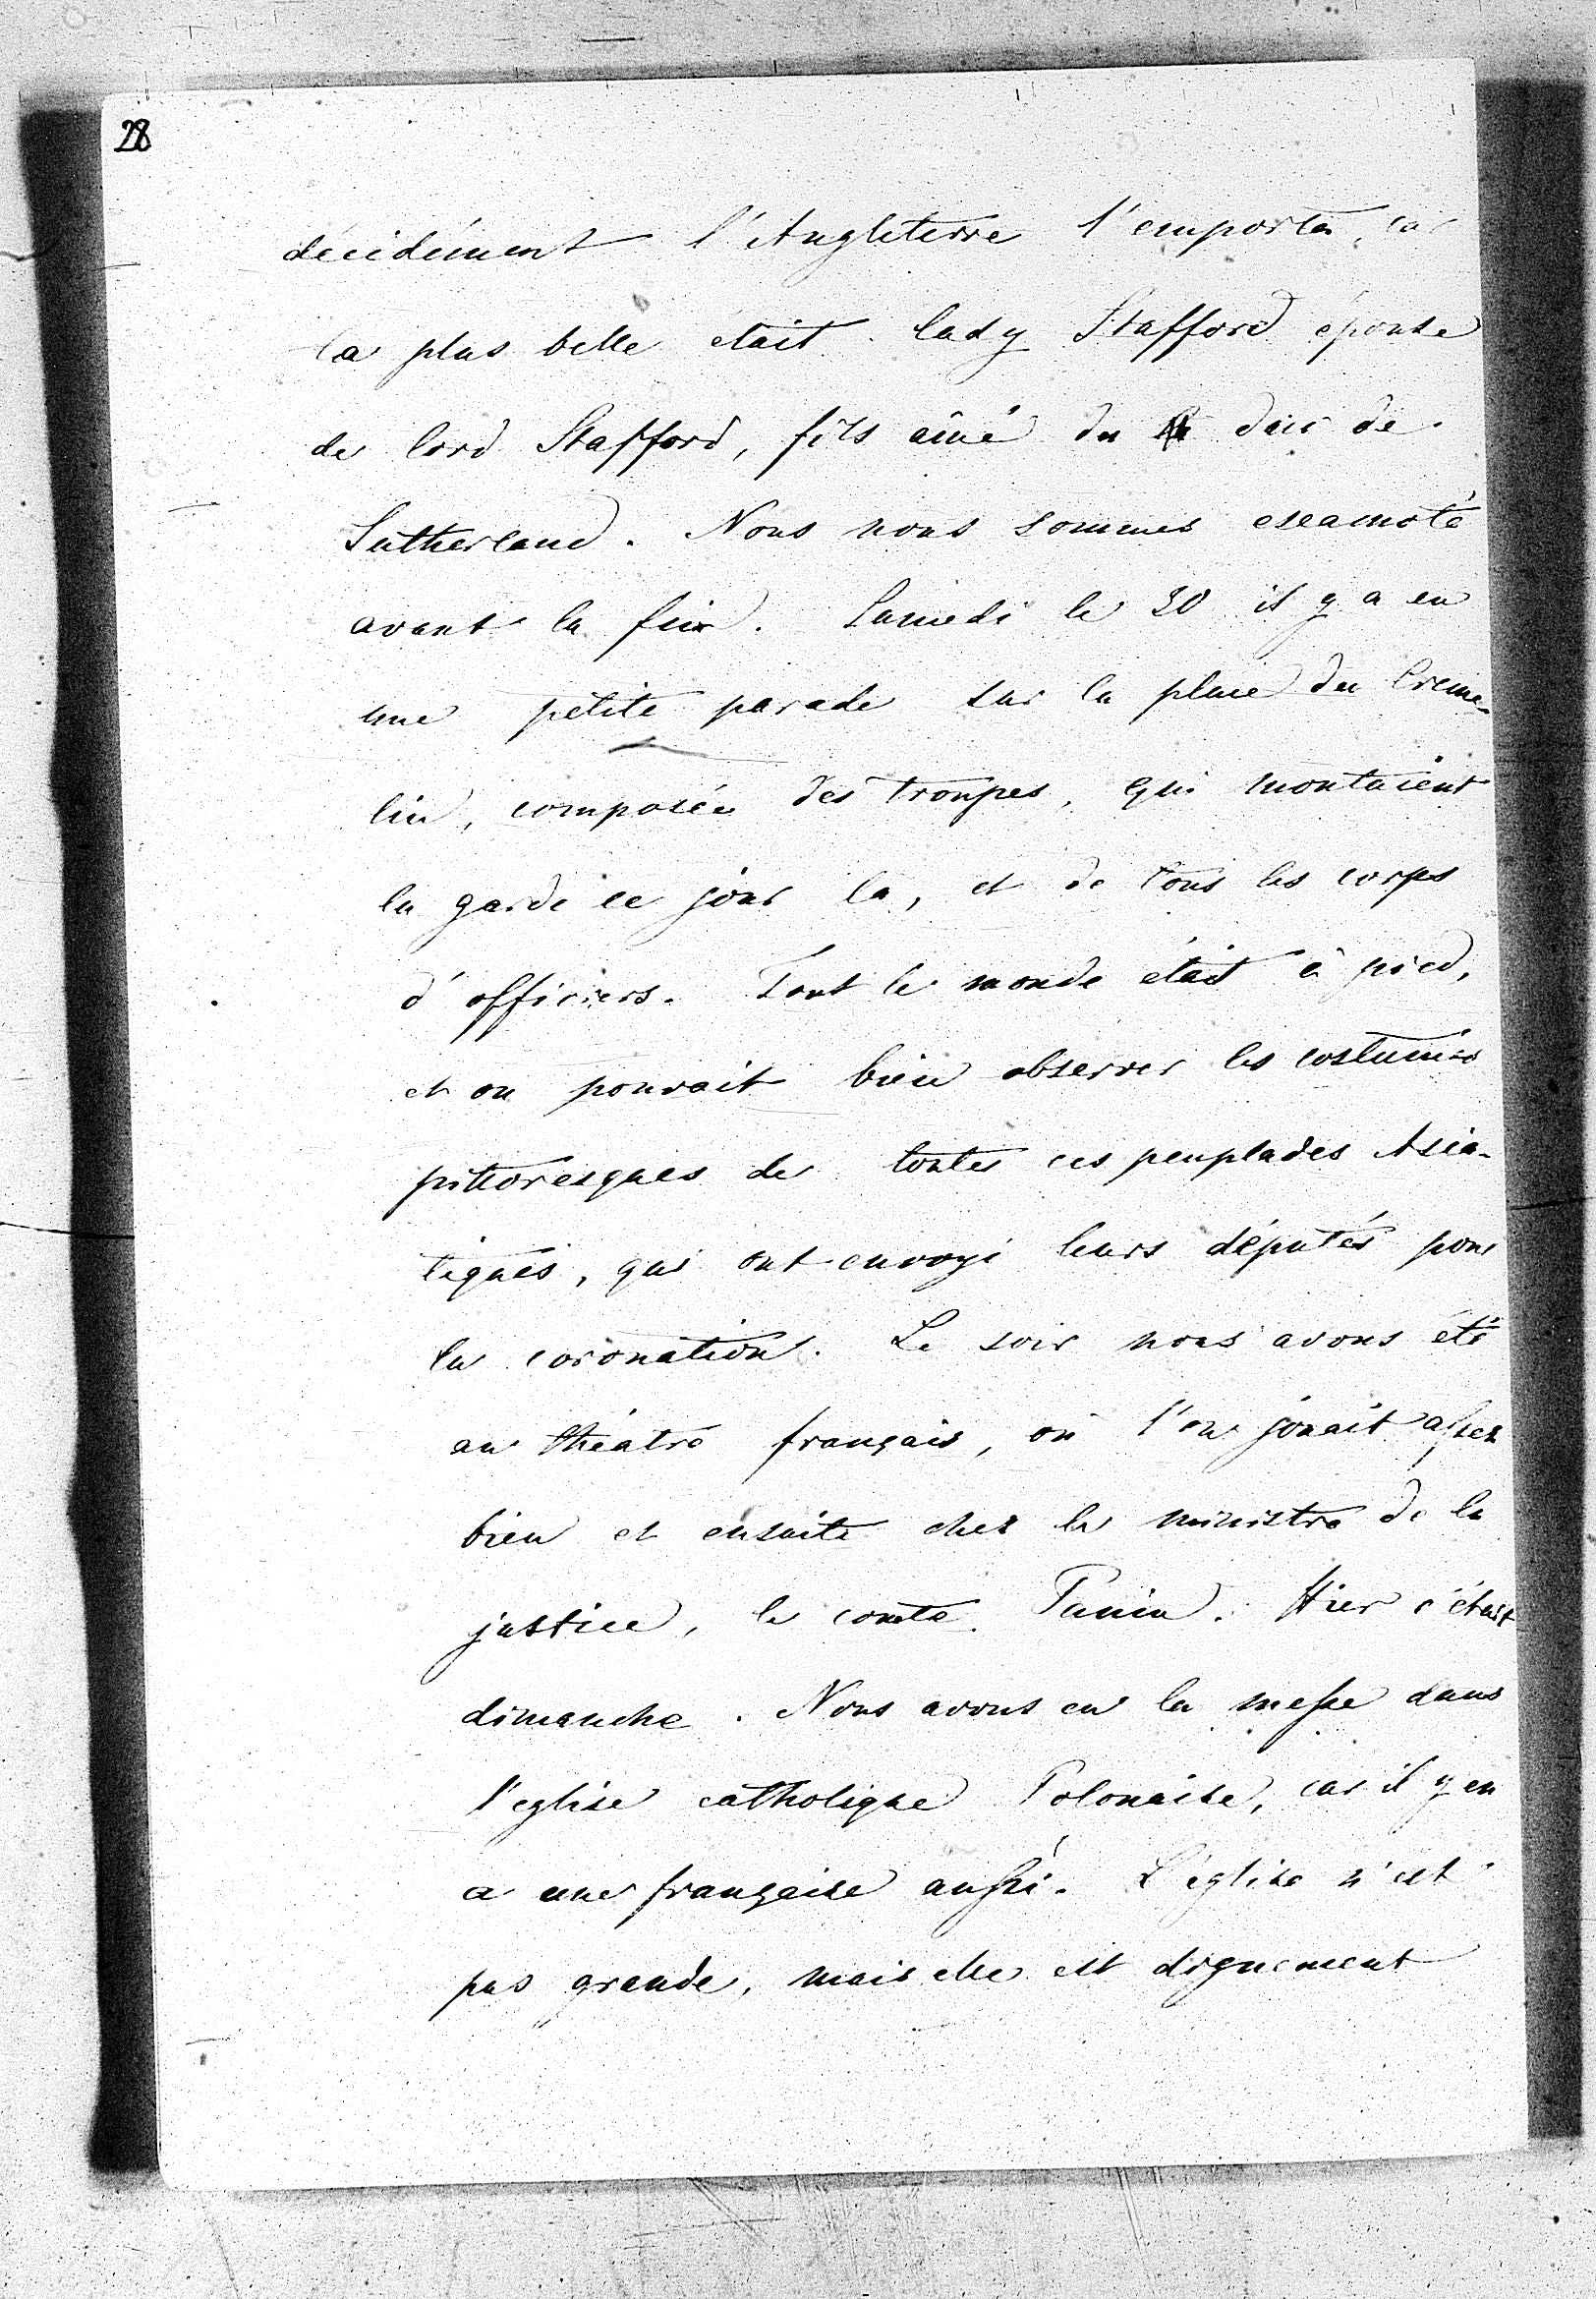 28
décidément l'Angleterre l'emporta, car
la plus belle etait lady Stafford épouse
de lord Stafford, fils aîné du duc de
Sutherland. Nous nous sommes escamoté
avant la fin. Samedi le 30 il y a eu
une petite parade sur la place du Creme-
lin, composée des troupes, qui montaient
la garde ce jour la, et de tous les corps
d'officiers. Tout le monde était à pied,
et on pouvait bien observer les costumes
pittoresques de toutes ces peuplades Asia-
tiques, qui ont envoyé leurs députés pour
la coronation. Le soir nous avons été
au théatre français, où l'on jouait assez
bien et ensuite chez le ministre de la
justice, le comte Panin. Hier c'était
dimanche. Nous avons eu la messe dans
l'eglise catholique Polonaise, car il y en
a une française aussi. L'église n'est
pas grande, mais elle est dignement